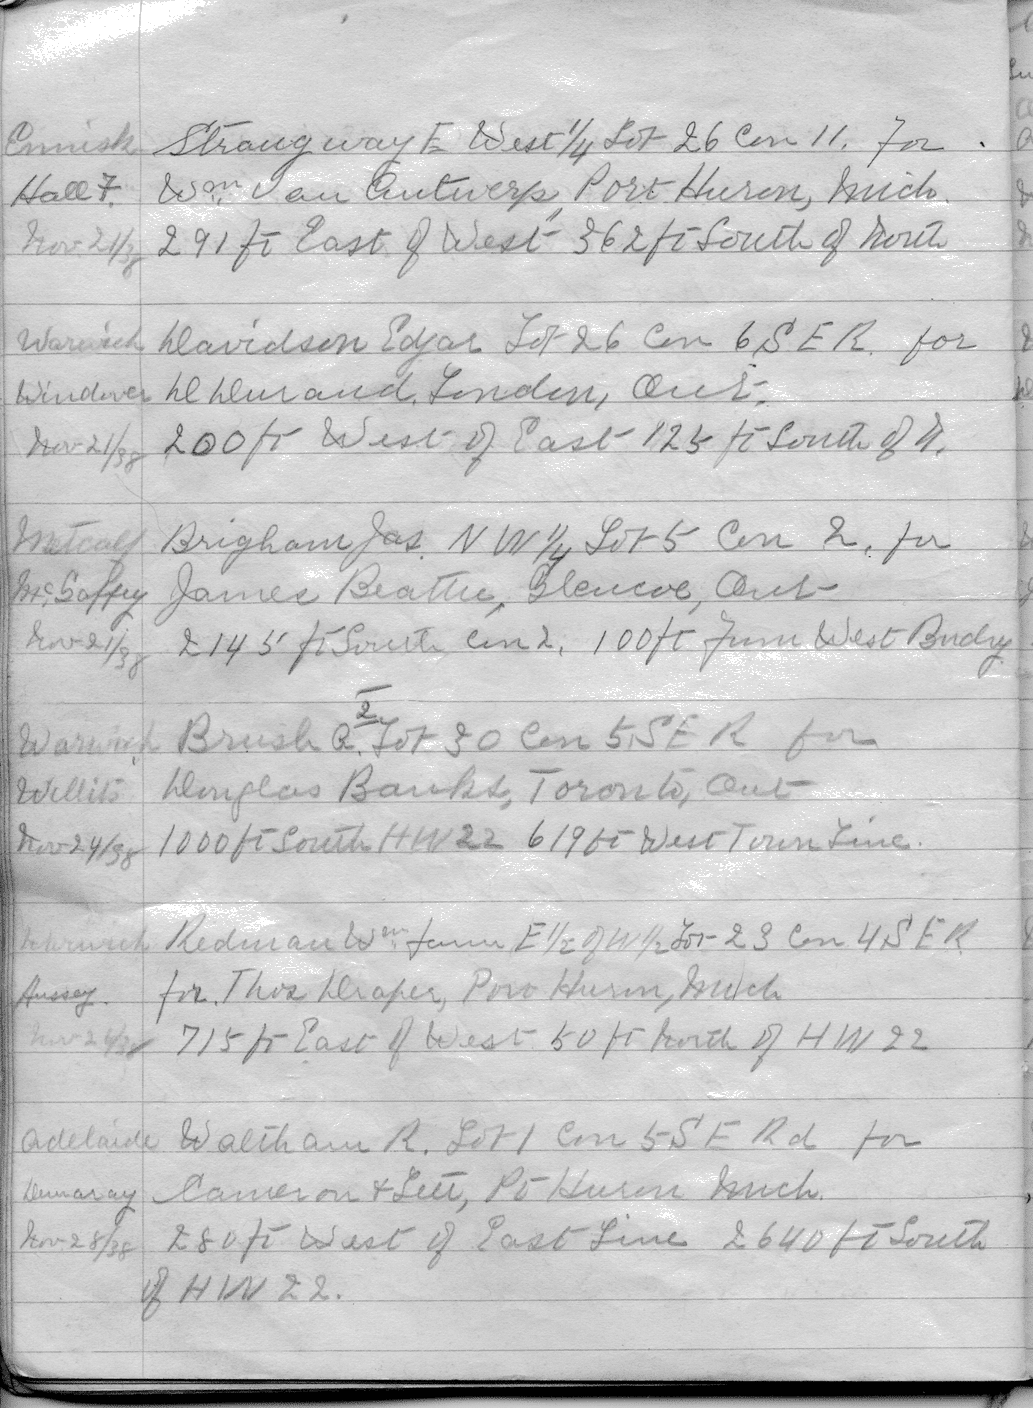 Ennisk Strangway E West 1/4 Lot 26 Con 11. for
Hall F. Wm. Van Antwerp, Port Huron, Mich.
Nov 21/38 291 ft East of West 362 ft South of North
Warwick Davidson Edgar Lot 26 Con 6 S E R. for
Windover D Durand, London, Ont.
Nov 21/38 200 ft West of East 125 ft South of N.
Metcalf Brigham Jas. N W 1/4 Lot 5 Con 2. for
McGaffey James Beattie, Glencoe, Ont
Nov 21/38 2145 ft South Con 2. 100 ft from West Bndry
2
Warwick Brush A. Lot 30 Con 5 S E R for
Willits Douglas Banks, Toronto, Ont
Nov 24/38 1000 ft South HW 22 619 ft West Town Line.
Warwick Redman Wm. farm E 1/2 of W 1/2 Lot 23 Con 4 S E R
Hussey. for Thos Draper, Port Huron, Mich
Nov 26/38 715 ft East of West 50 ft North of H W 22
Adelaide Waltham R. Lot 1 Con 5 S E Rd for
Dumaray Cameron & Lett, Pt Huron Mich.
Nov 28/38 280 ft West of East Line 2640 ft South
of H W 22.